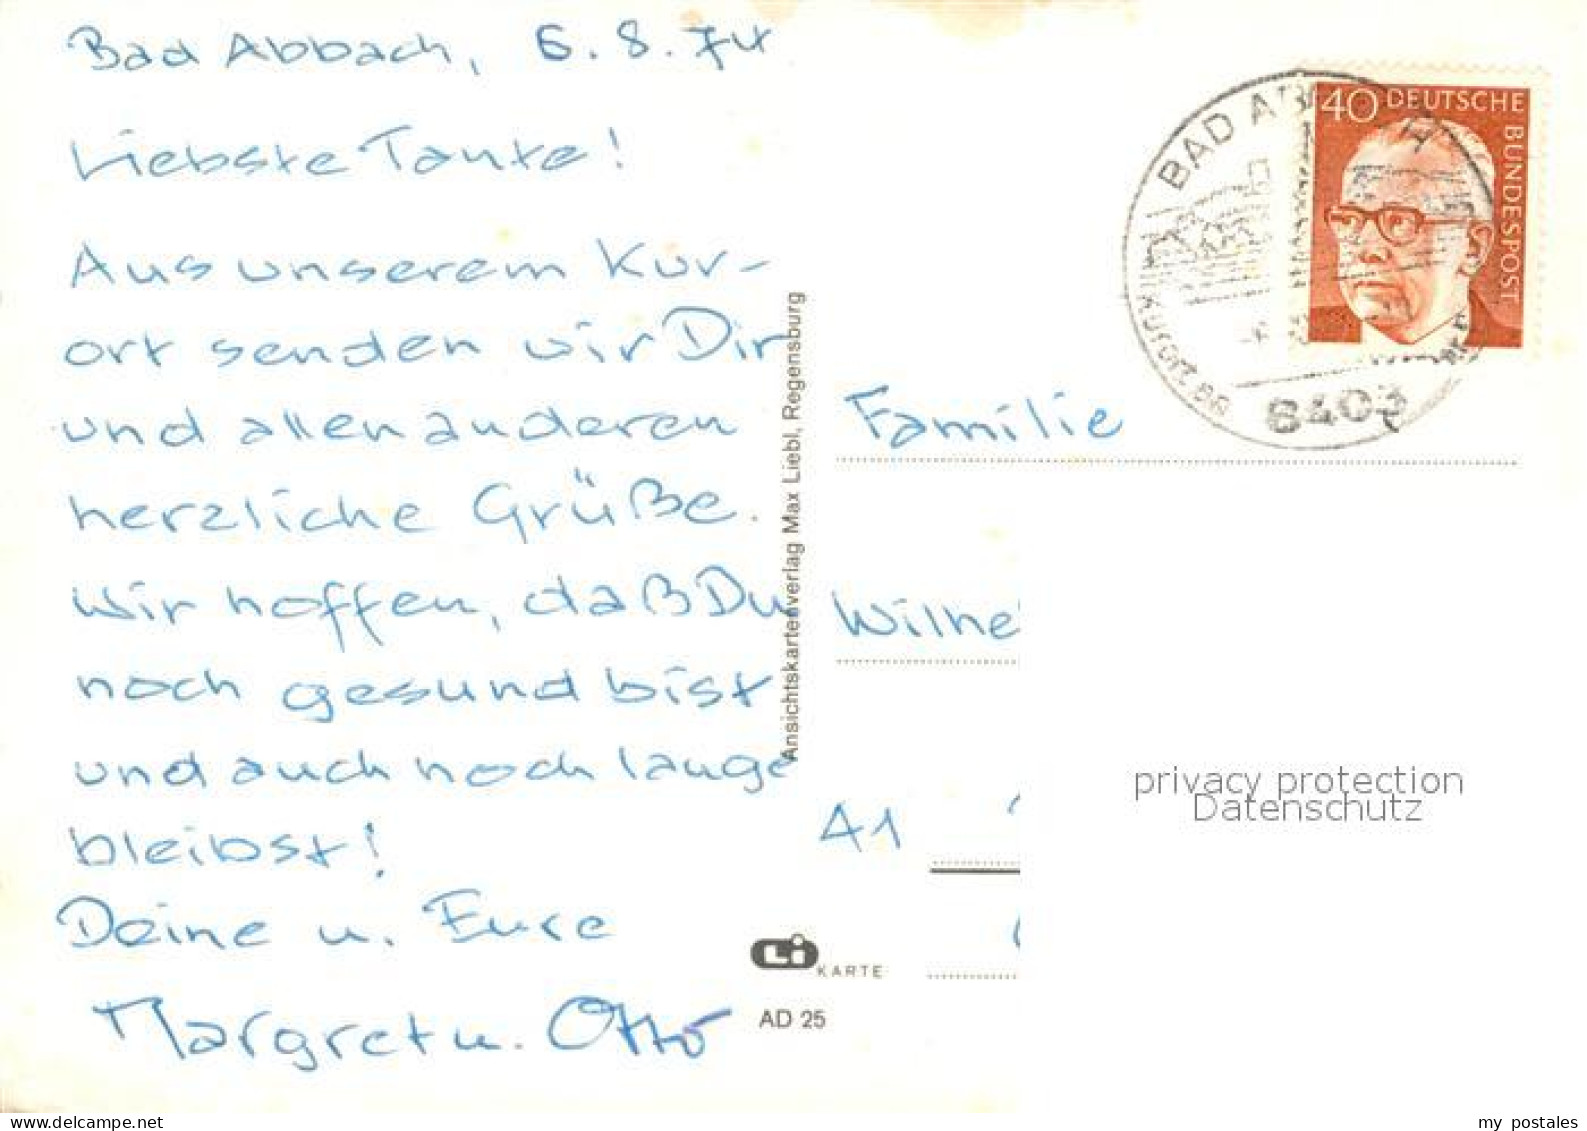 Bad Abbach, 6.8.74
Liebste Tante!
Aus unserem Kur-
ort senden wir Dir
und allen anderen
herzliche Grüße.
Wir hoffen, daß Du
noch gesund bist
und auch noch lange
bleibst!
Deine u. Eure
Margret u. Otto
Ansichtskartenverlag Max Liebl, Regensburg
Li
KARTE
AD 25
40 DEUTSCHE
BUNDESPOST
BAD
Kurort
8403
Familie
Wilhe
A1
privacy protection
Datenschutz
my postales